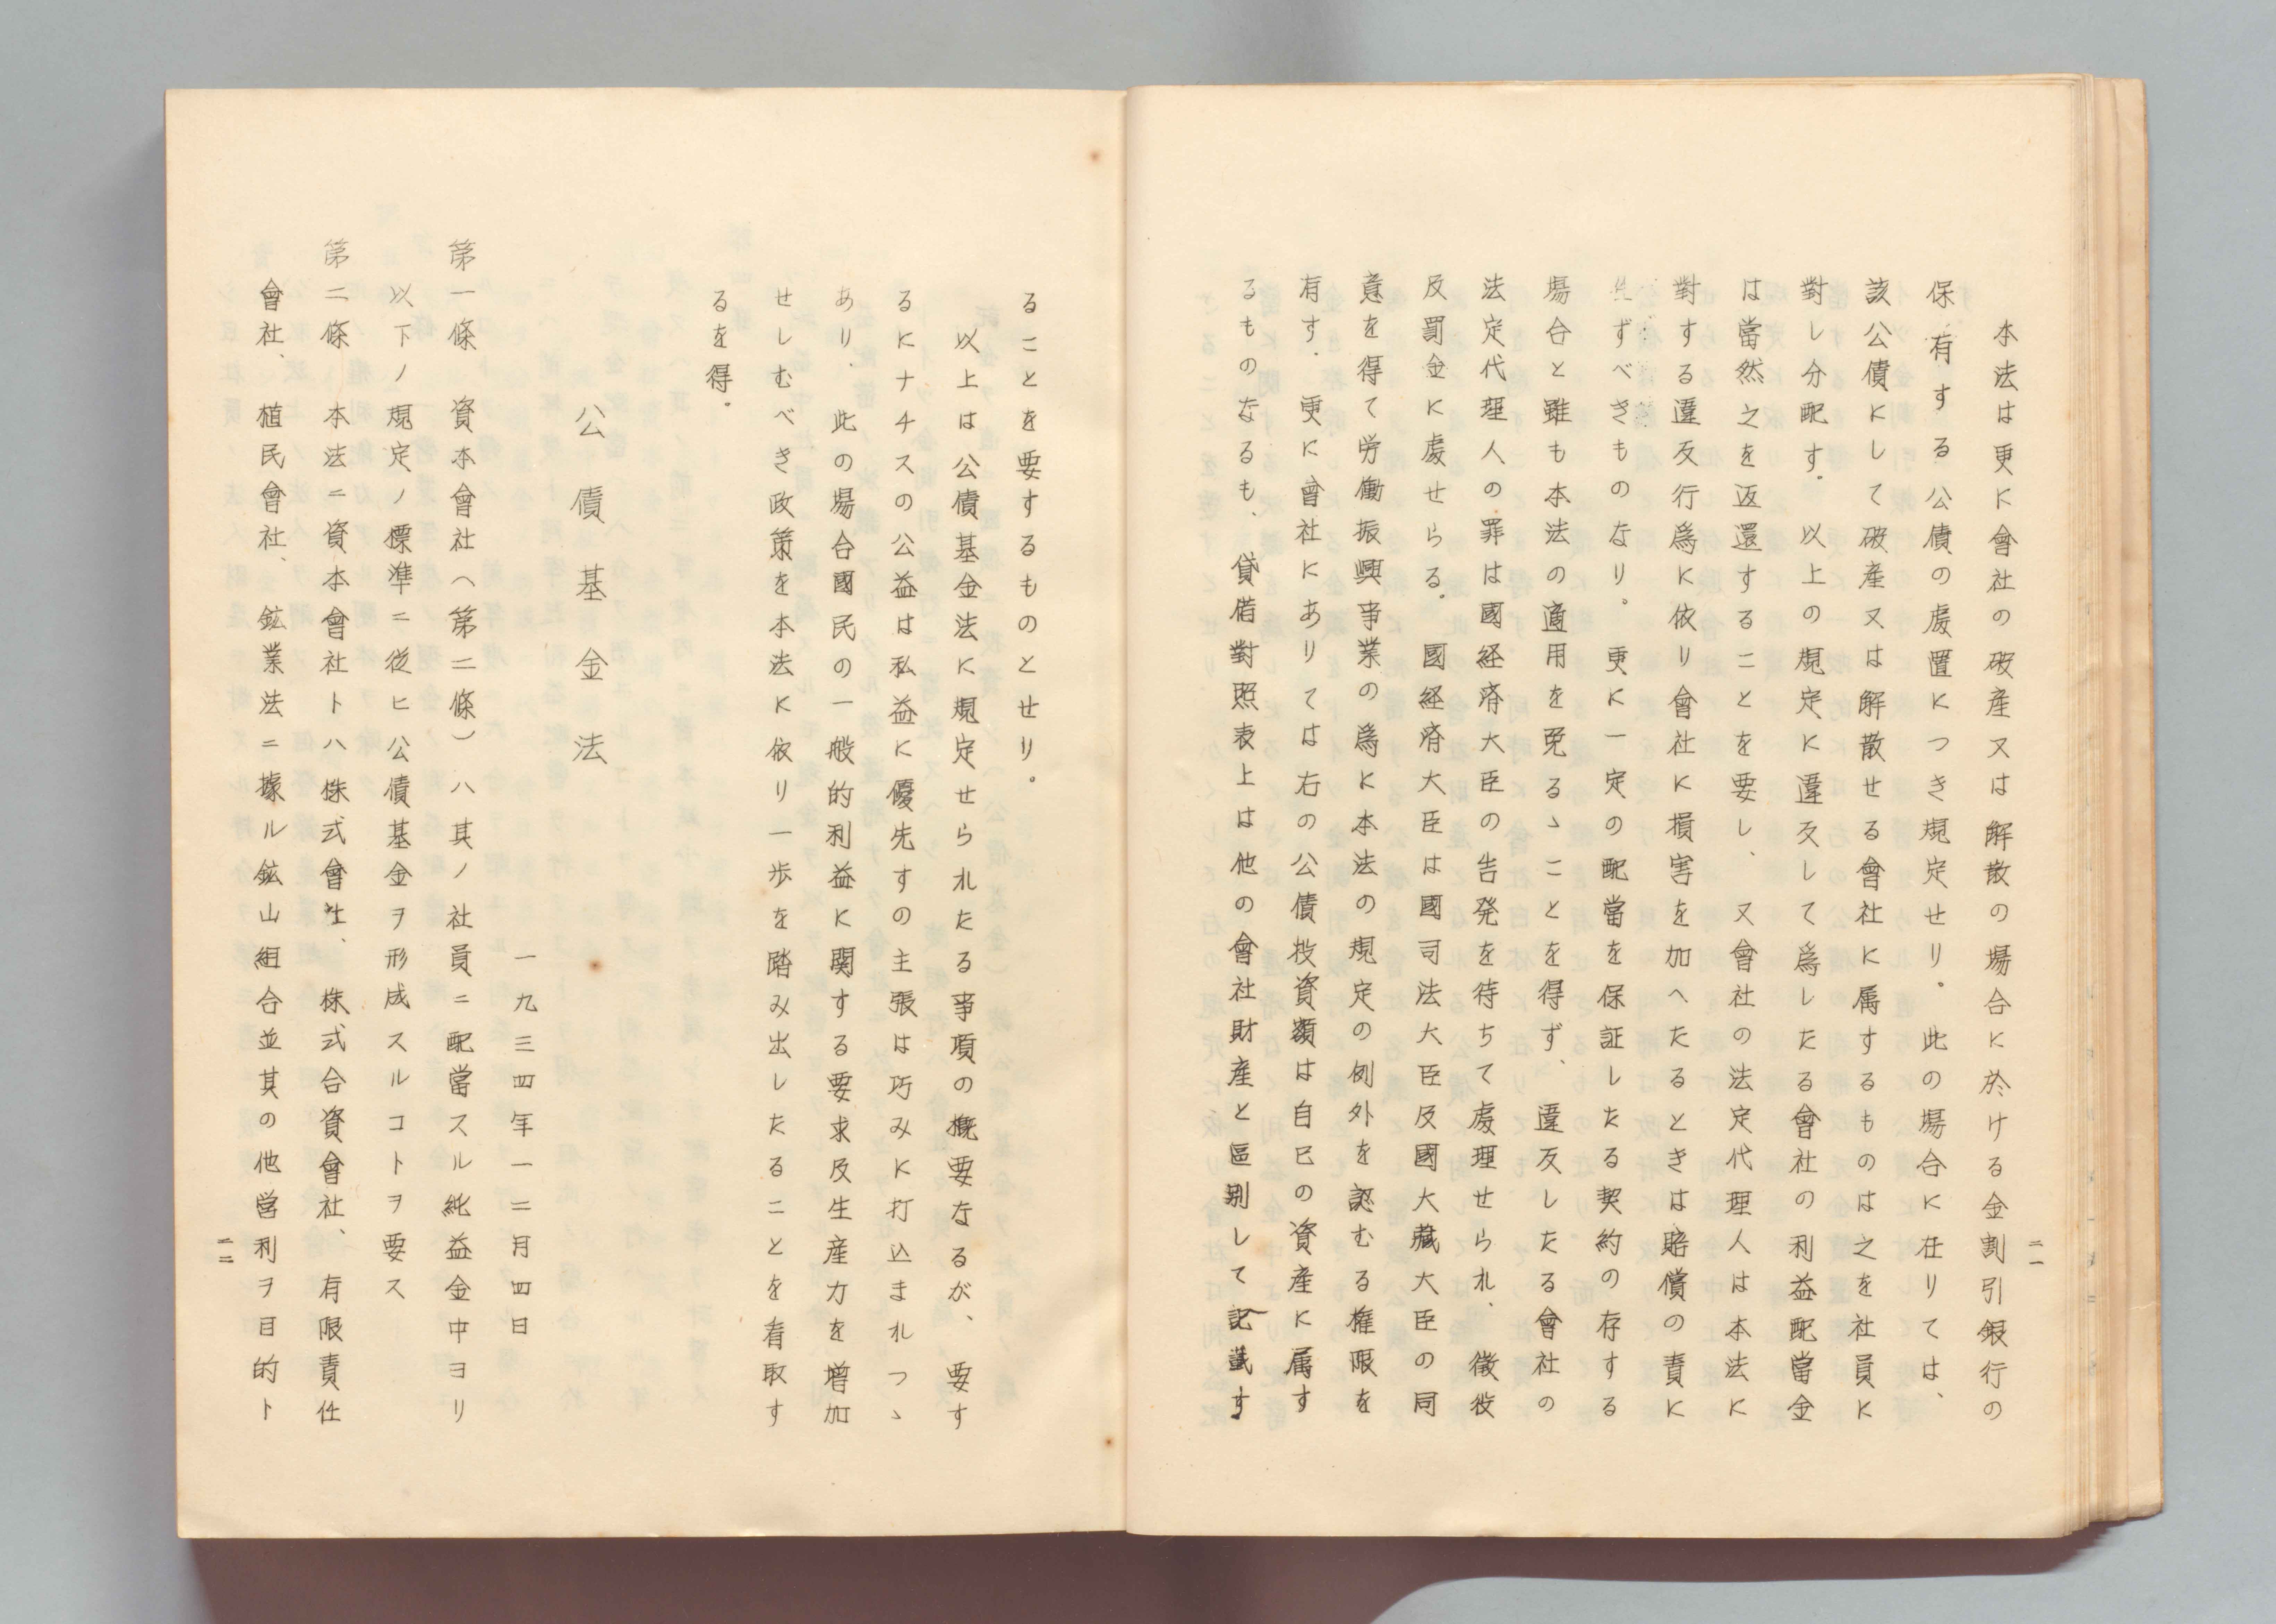 本法は更に會社の破産又は解散の場合に於ける金割引銀行の
保有する公債の處置につき規定せり。此の場合に在りては、
該公債にして破産又は解散せる會社に属するものは之を社員に
對し分配す。以上の規定に違反して爲したる會社の利益配當金
は當然之を返還することを要し、又會社の法定代理人は本法に
對する違反行爲に依り會社に損害を加へたるときは賠償の責に
任ずべきものなり。更に一定の配當を保証したる契約の存する
場合と雖も本法の適用を免るゝことを得ず、違反したる會社の
法定代理人の罪は國経済大臣の告発を待ちて處理せられ、徵役
反罰金に處せらる。國経済大臣は國司法大臣及國大藏大臣の同
意を得て労働振興事業の爲に本法の規定の例外を認むる権限を
有す．更に會社にありては右の公債投資額は自己の資産に属す
るものなるも、貸借對照表上は他の會社財産と區別して記載す
二一
ることを要するものとせり。
以上は公債基金法に規定せられたる事項の概要なるが、要す
るにナチスの公益は私益に優先すの主張は巧みに打込まれつゝ
あり、此の場合國民の一般的利益に関する要求及生産力を増加
せしむべき政策を本法に依り一歩を踏み出したることを看取す
るを得．
公債基金法
一九三四年一二月四日
第一條　資本會社（第二條）ハ其ノ社員ニ配當スル純益金中ヨリ
以下ノ規定ノ標準ニ從ヒ公債基金ヲ形成スルコトヲ要ス
第二條　本法ニ資本會社トハ株式會社、株式合資會社、有限責任
會社、植民會社、鉱業法ニ據ル鉱山組合並其の他営利ヲ目的ト
二二